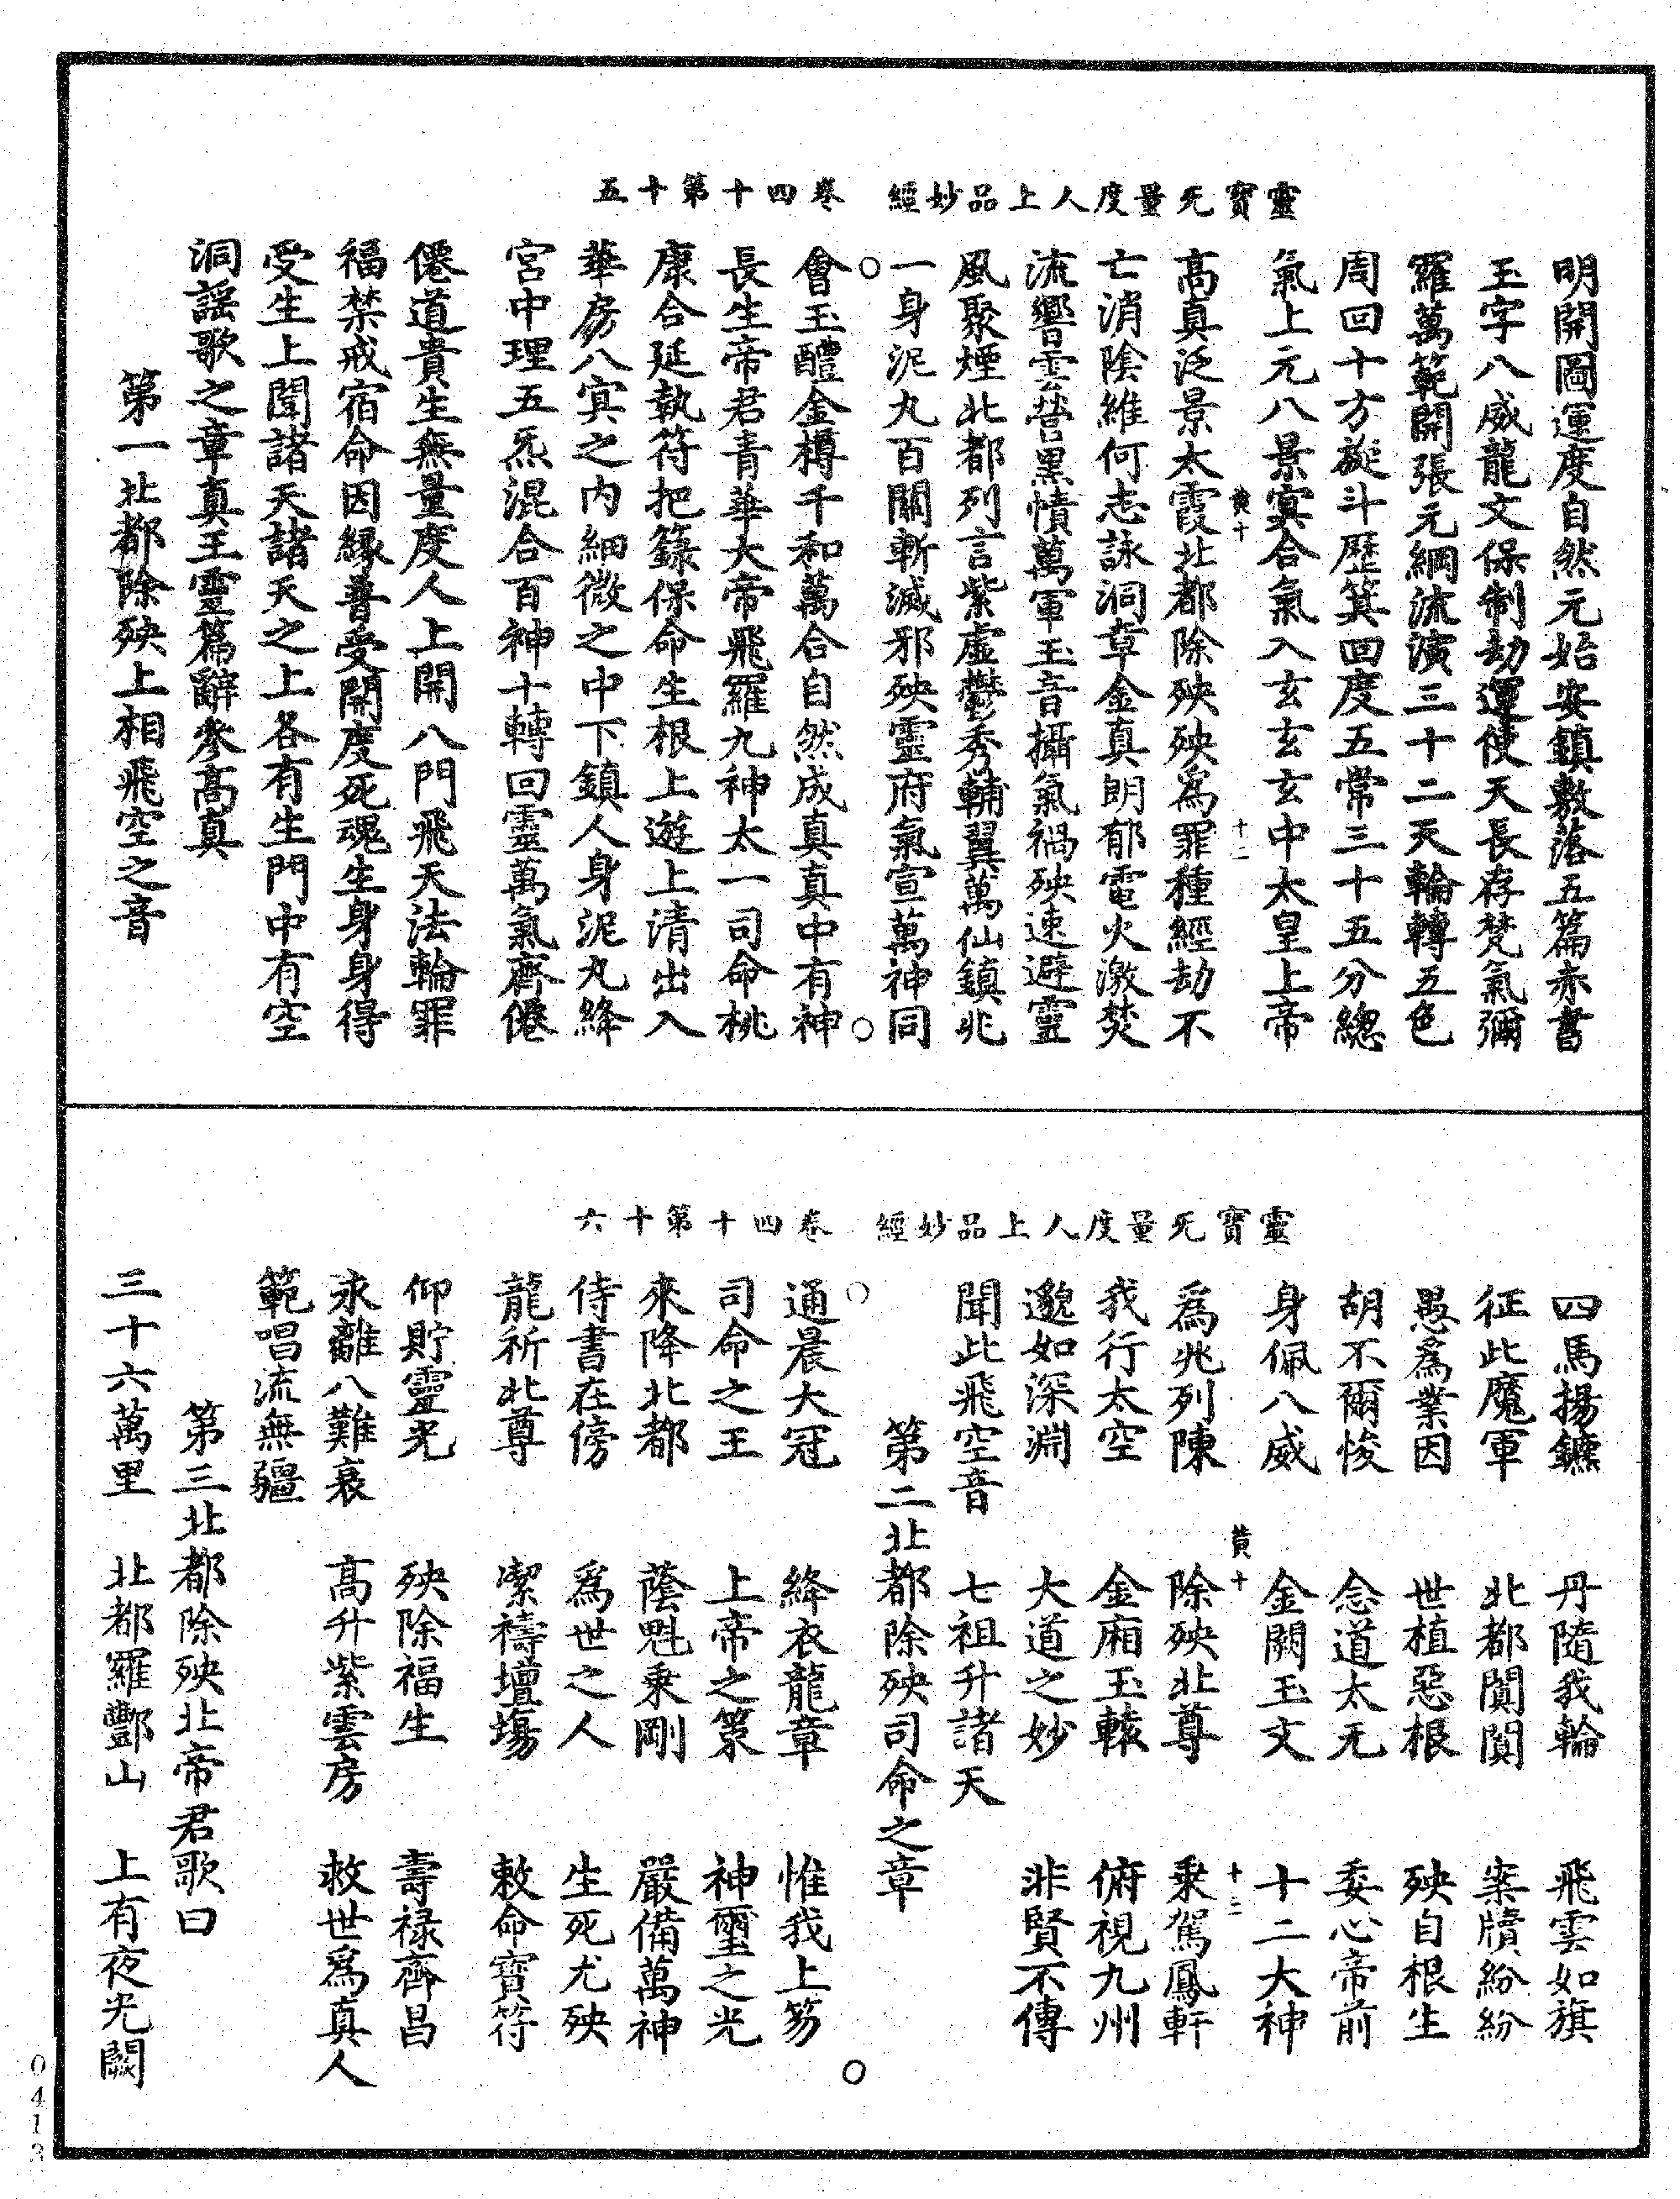 靈寶无量度人上品妙經　卷四十第十五
明開圖運度自然元始安鎮敷落五篇赤書
玉字八威龍文保制劫運使天長存梵氣彌
羅萬範開張元綱流演三十二天輪轉五色
周回十方旋斗歷箕回度五常三十五分總
氣上元八景㝠合氣入玄玄玄中太皇上帝
黃十　十二
高真泛景太霞北都除殃殃爲罪種經劫不
亡消陰維何志詠洞章金真朗郁電火激焚
流響雲營黑憒萬軍玉音攝氣禍殃速避靈
風聚煙北都列言紫虛鬱秀輔翼萬仙鎮兆
一身泥丸百關斬滅邪殃靈府氣宣萬神同
會玉醴金樽千和萬合自然成真真中有神
長生帝君青華大帝飛羅九神太一司命桃
康合延執符把籙保命生根上遊上清出入
華房八㝠之内細微之中下鎮人身泥丸絳
宮中理五炁混合百神十轉回靈萬氣齊僊
僊道貴生無量度人上開八門飛天法輪罪
福禁戒宿命因緣普受開度死魂生身身得
受生上聞諸天諸天之上各有生門中有空
洞謠歌之章真王靈篇辭參高真
第一北都除殃上相飛空之音
靈寶无量度人上品妙經　卷四十第十六
四馬揚鑣　丹隨我輪　飛雲如旗
征此魔軍　北都闃闃　案牘紛紛
愚爲業因　世植惡根　殃自根生
胡不爾悛　念道太无　委心帝前
身佩八威　金闕玉文　十二大神
黃十　十三
爲兆列陳　除殃北尊　乘駕鳳軒
我行太空　金廂玉轅　俯視九州
邈如深淵　大道之妙　非賢不傳
聞此飛空音　七祖升諸天
第二北都除殃司命之章
通晨大冠　絳衣龍章　惟我上笏
司命之王　上帝之策　神璽之光
來降北都　蔭魁乘剛　嚴備萬神
侍書在傍　爲世之人　生死尤殃
龍祈北尊　潔禱壇場　敕命寶符
仰貯靈光　殃除福生　壽禄齊昌
永離八難哀　高升紫雲房　救世爲真人
範唱流無疆
第三北都除殃北帝君歌曰
三十六萬里　北都羅酆山　上有夜光闕
0413